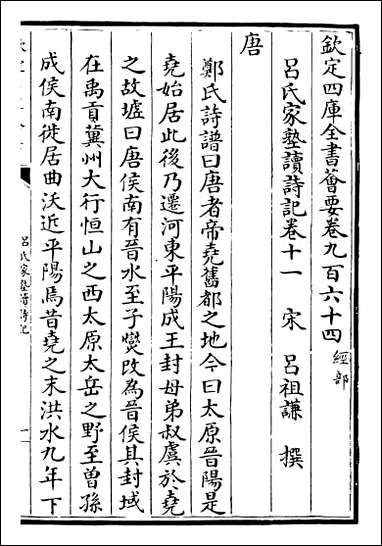 欽定四庫全書薈要卷九百六十四 經部
呂氏家塾讀詩記卷十一 宋 呂祖謙 撰
唐
鄭氏詩譜曰唐者帝堯舊都之地今曰太原晉陽是
堯始居此後乃遷河東平陽成王封母弟叔虞於堯
之故墟曰唐侯南有晉水至子燮改為晉侯其封域
在禹貢冀州大行恒山之西太原太岳之野至曾孫
成侯南徙居曲沃近平陽焉昔堯之末洪水九年下
呂氏家塾讀詩記